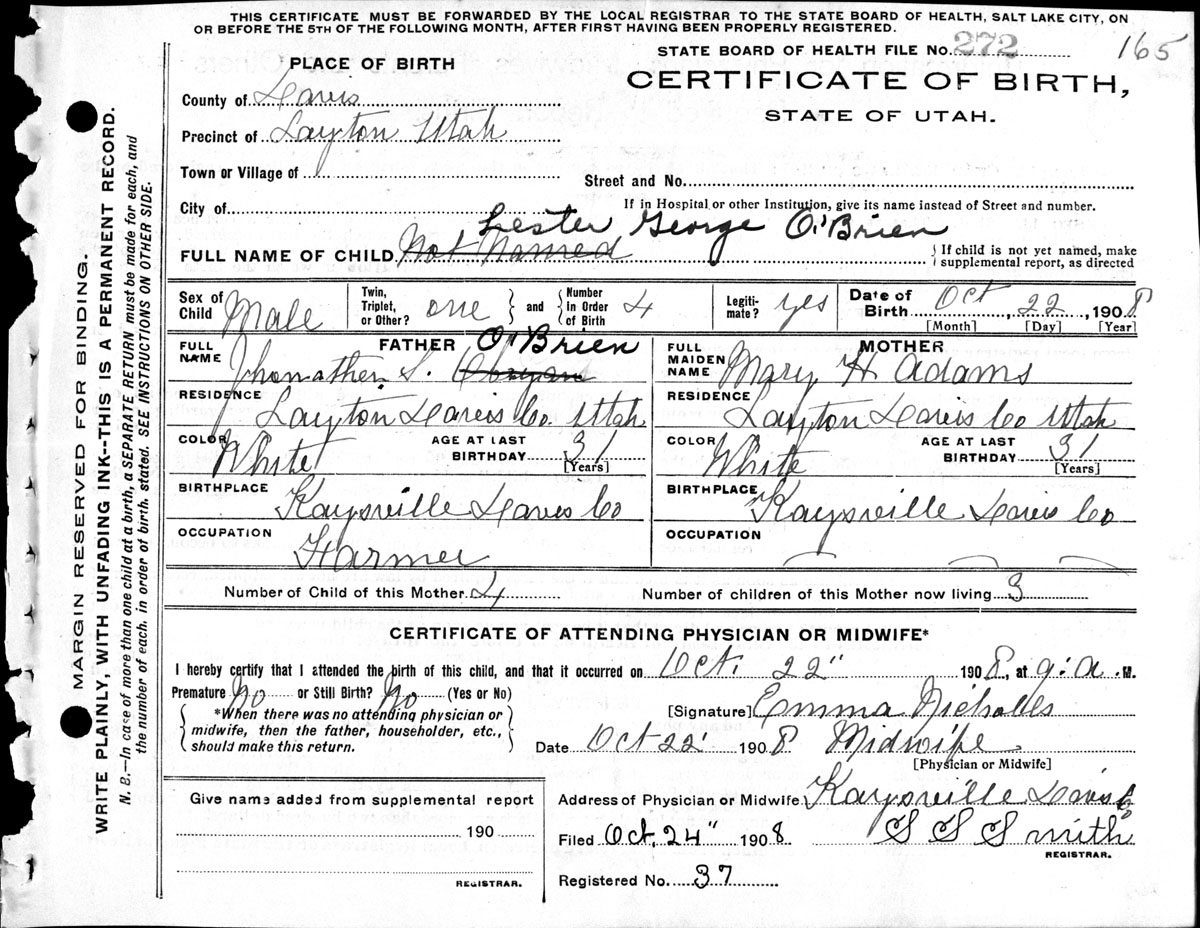 THIS CERTIFICATE MUST BE FORWARDED BY THE LOCAL REGISTRAR TO THE STATE BOARD OF HEALTH, SALT LAKE CITY, ON
OR BEFORE THE 5TH OF THE FOLLOWING MONTH, AFTER FIRST HAVING BEEN PROPERLY REGISTERED.
STATE BOARD OF HEALTH FILE NO. 272 165
PLACE OF BIRTH
CERTIFICATE OF BIRTH,
STATE OF UTAH.
County of Davis
Precinct of Layton Utah
Town or Village of
Street and No.
City of
If in Hospital or other Institution, give its name instead of Street and number.
Lester George O'Brien
FULL NAME OF CHILD Not Named { If child is not yet named, make supplemental report, as directed
Sex of Child Male Twin, Triplet, or Other? one } and { Number In Order of Birth 4 Legitimate? yes Date of Birth Oct, 22, 1908
[Month] [Day] [Year]
FATHER O'Brien
FULL NAME Jhonathen S. Obryan
RESIDENCE Layton Davis Co. Utah
COLOR White AGE AT LAST BIRTHDAY 31
[Years]
BIRTHPLACE Kaysville Davis Co
OCCUPATION Farmer
MOTHER
FULL MAIDEN NAME Mary H Adams
RESIDENCE Layton Davis Co Utah
COLOR White AGE AT LAST BIRTHDAY 31
[Years]
BIRTHPLACE Kaysville Davis Co
OCCUPATION
Number of Child of this Mother 4 Number of children of this Mother now living 3
CERTIFICATE OF ATTENDING PHYSICIAN OR MIDWIFE*
I hereby certify that I attended the birth of this child, and that it occurred on Oct. 22" 1908, at 9: a. M.
Premature No or Still Birth? No (Yes or No)
{ *When there was no attending physician or
midwife, then the father, householder, etc.,
should make this return. }
[Signature] Emma Nicholls
Date Oct 22 1908 Midwife
[Physician or Midwife]
Give name added from supplemental report
190
REGISTRAR.
Address of Physician or Midwife Kaysville Davis Co
Filed Oct. 24" 1908 S S Smith
REGISTRAR.
Registered No. 37
MARGIN RESERVED FOR BINDING.
WRITE PLAINLY, WITH UNFADING INK--THIS IS A PERMANENT RECORD.
N. B.—In case of more than one child at a birth, a SEPARATE RETURN must be made for each, and
the number of each. in order of birth. stated. SEE INSTRUCTIONS ON OTHER SIDE.